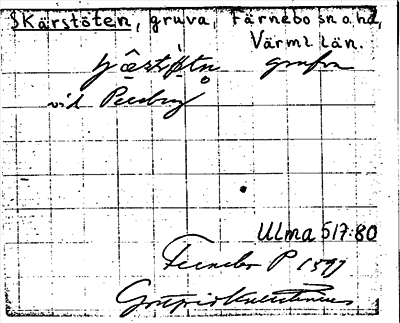 Skärstöten, gruva, Färnebo sn o. hd,
Värml. län.
grufva
vid Persberg
Ulma 517:80
Fernebo P 1597